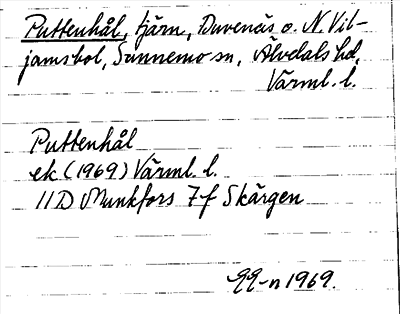 Puttenhål, tjärn, Duvenäs o. N. Vil-
jamsbol, Sunnemo sn, Älvdals hd,
Värml. l.
Puttenhål
ek (1969) Värml. l.
11D Munkfors 7f Skärgen
1969.